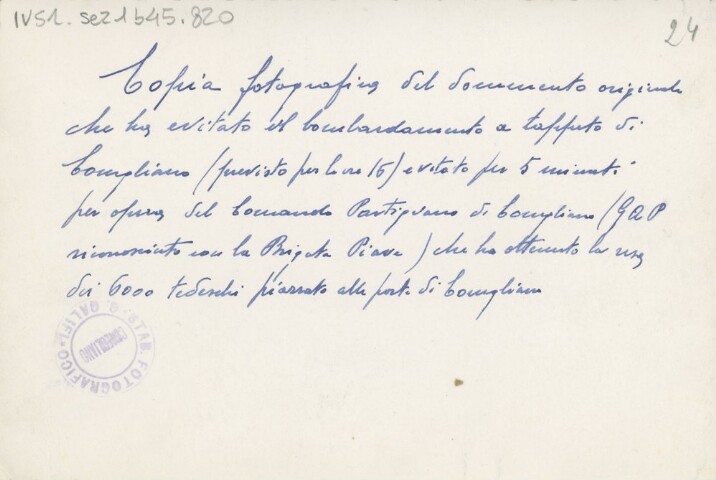 IVS1. sez1 b45.820
24
Copia fotografica del documento originale
che ha evitato il bombardamento a tappeto di
Conegliano (previsto per le ore 16) evitato per 5 minuti
per opera del Comando Partigiano di Conegliano (GAP
riconosciuto con la Brigata Piave) che ha ottenuto la resa
dei 6000 tedeschi piazzato alle porte di Conegliano
STAB. FOTOGRAFICO G. GALIFI
CONEGLIANO